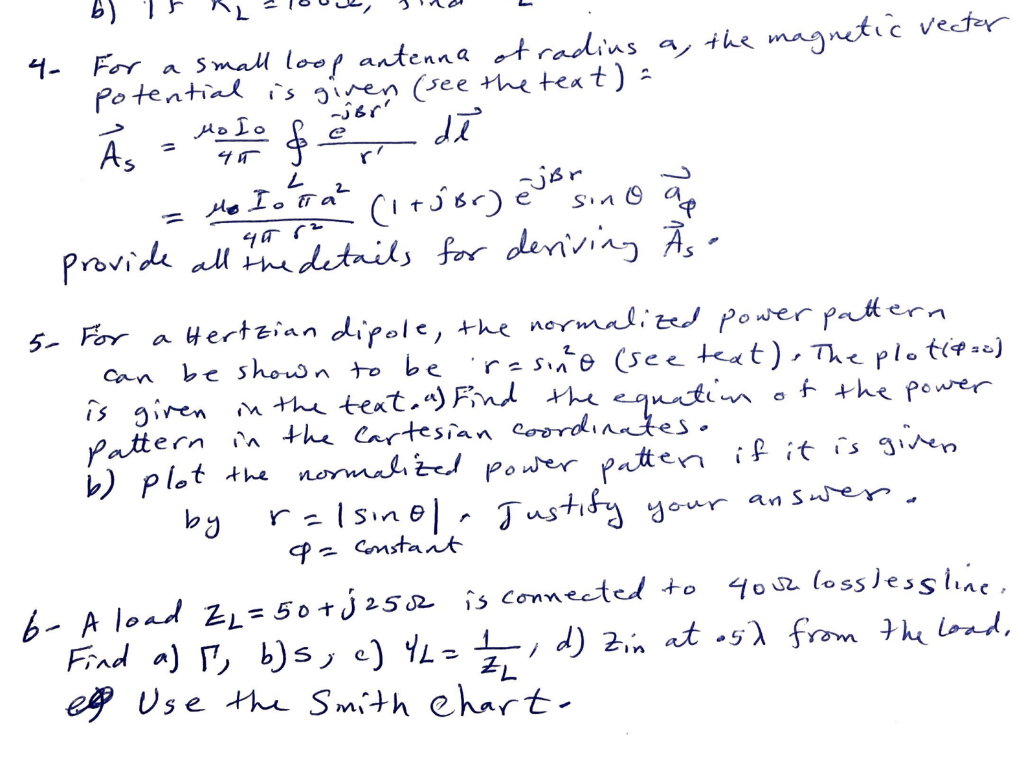 b) If R_L = 100Ω,
4- For a small loop antenna of radius a, the magnetic vector
potential is given (see the text) =
\vec{A}_s = \frac{μ_0 I_0}{4π} ∮_L \frac{e^{-jβr'}}{r'} d\vec{l}
= \frac{μ_0 I_0 π a^2}{4π r^2} (1+jβr) e^{-jβr} sin θ \vec{a}_φ
provide all the details for deriving \vec{A}_s.
5- For a Hertzian dipole, the normalized power pattern
can be shown to be r = sin^2 θ (see text). The plot (φ=0)
is given in the text. a) Find the equation of the power
pattern in the Cartesian coordinates.
b) plot the normalized power pattern if it is given
by r = |sin θ|. Justify your answer.
φ = constant
6- A load Z_L = 50 + j25Ω is connected to 40Ω lossless line.
Find a) Γ, b) s, c) Y_L = \frac{1}{Z_L}, d) Zin at .5λ from the load.
Use the Smith chart.